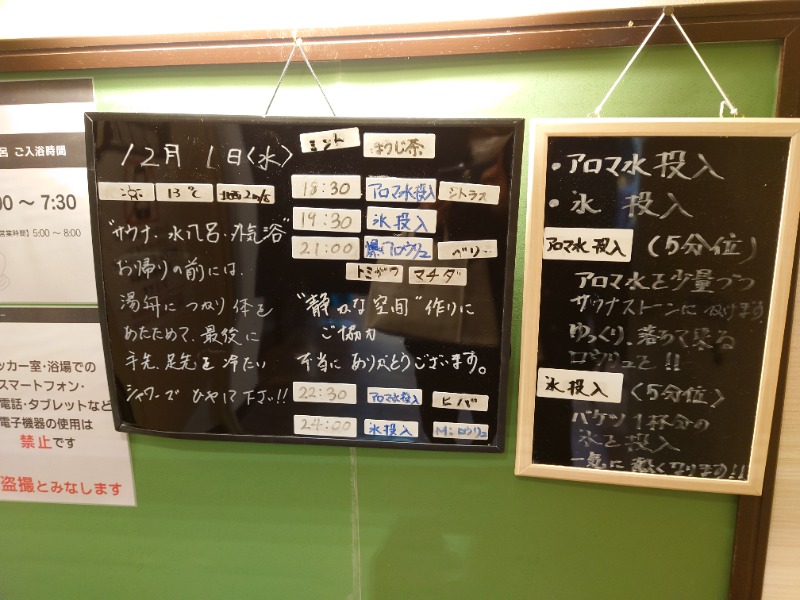 呂 ご入浴時間
00 ～ 7:30
営業時間】5:00 ～ 8:00
ッカー室・浴場での
スマートフォン・
電話・タブレットなど
電子機器の使用は
禁止です
盗撮とみなします
12月 1日(水)
ミント ほうじ茶
13℃
18:30 アロマ水投入 シトラス
19:30 氷投入
21:00 爆アロウリュ ベリー
トミザワ マチダ
"サウナ、水風呂、外気浴"
お帰りの前には、
湯舟につかり体を
あたためて、最後に
手先、足先を冷たい
シャワーで ひやして下さい!!
"静かな空間"作りに
ご協力
本当に ありがとうございます。
22:30 アロマ水投入 ヒバ
24:00 氷投入
・アロマ水投入
・氷 投入
アロマ水投入 (5分位)
アロマ水を少量づつ
サウナストーンにかけます
ゆっくり、落ちて来る
ロウリュです!!
氷投入 (5分位)
バケツ1杯分の
氷を投入
一気に熱くなります!!